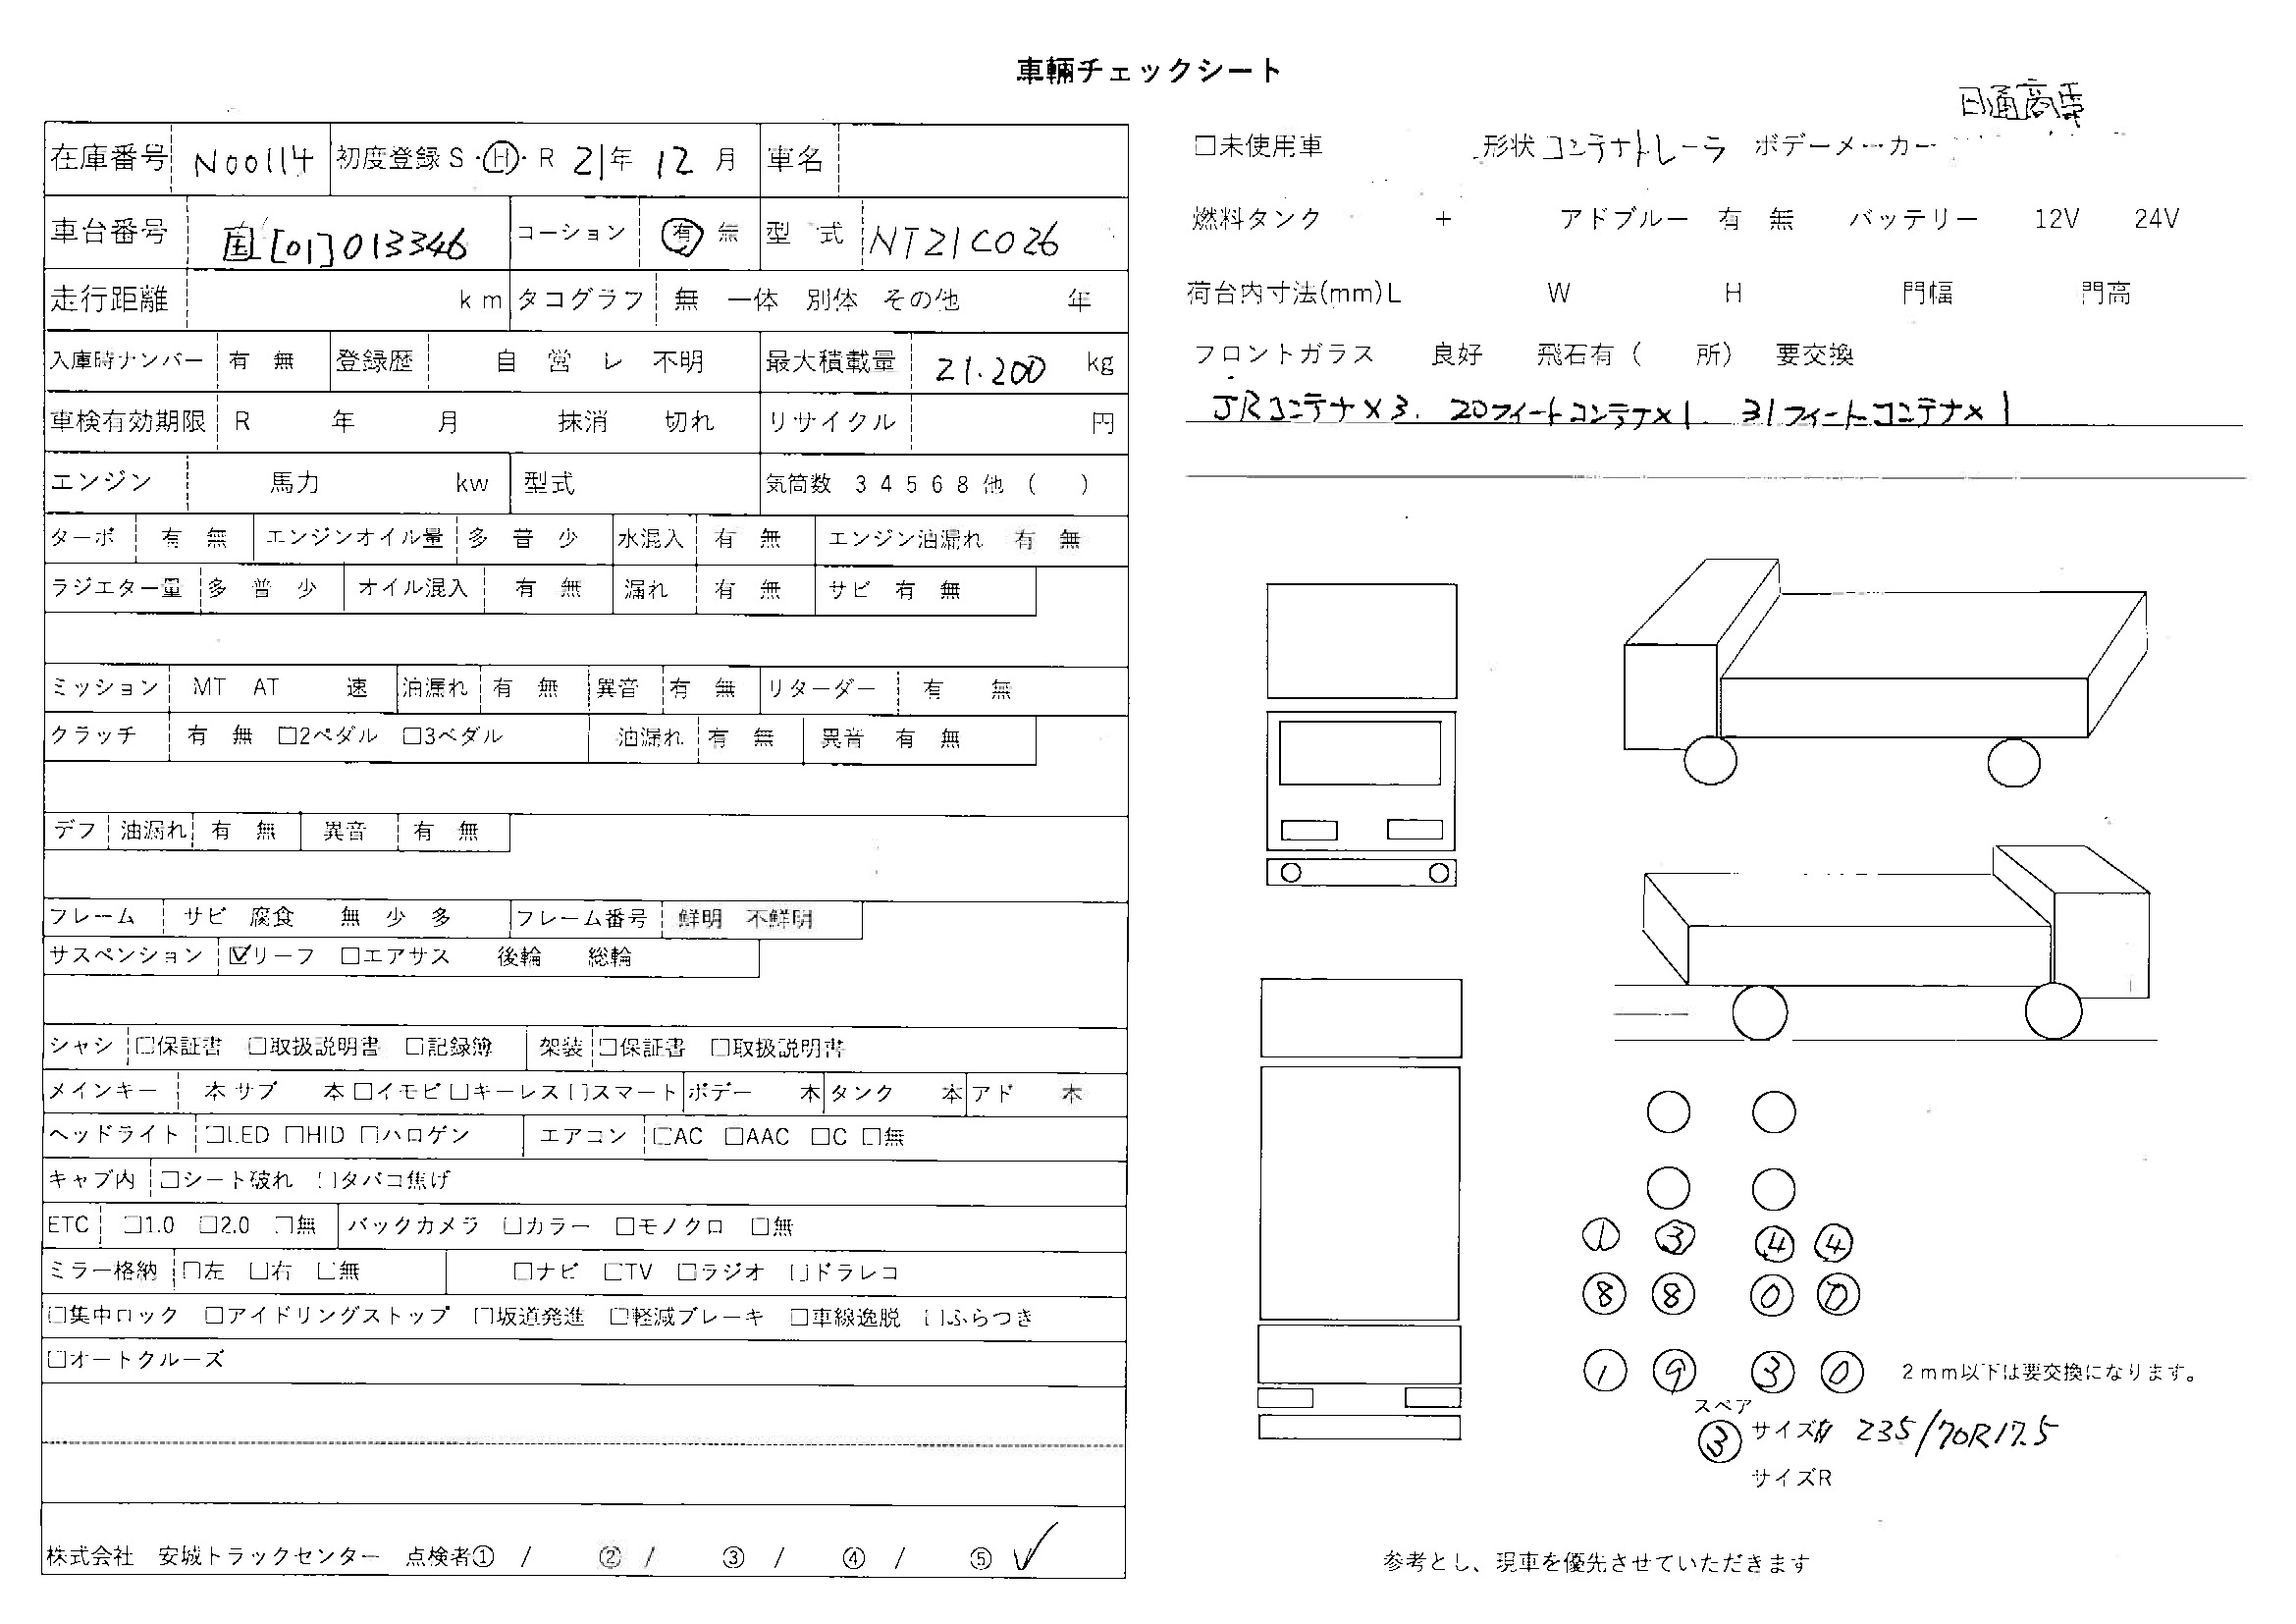 車輛チェックシート
日通商事
在庫番号 N00114 初度登録 S・Ⓗ・R 21年 12月 車名
車台番号 国[01]013346 コーション 有 無 型 式 NT21C026
走行距離 km タコグラフ 無 一体 別体 その他 年
入庫時ナンバー 有 無 登録歴 自 営 レ 不明 最大積載量 21.200 kg
車検有効期限 R 年 月 抹消 切れ リサイクル 円
エンジン 馬力 kw 型式 気筒数 3 4 5 6 8 他 ( )
ターボ 有 無 エンジンオイル量 多 普 少 水混入 有 無 エンジン油漏れ 有 無
ラジエター量 多 普 少 オイル混入 有 無 漏れ 有 無 サビ 有 無
ミッション MT AT 速 油漏れ 有 無 異音 有 無 リターダー 有 無
クラッチ 有 無 □2ペダル □3ペダル 油漏れ 有 無 異音 有 無
デフ 油漏れ 有 無 異音 有 無
フレーム サビ 腐食 無 少 多 フレーム番号 鮮明 不鮮明
サスペンション ☑リーフ □エアサス 後輪 総輪
シャシ □保証書 □取扱説明書 □記録簿 架装 □保証書 □取扱説明書
メインキー 本 サブ 本 □イモビ □キーレス □スマート ボデー 本 タンク 本 アド 本
ヘッドライト □LED □HID □ハロゲン エアコン □AC □AAC □C □無
キャブ内 □シート破れ □タバコ焦げ
ETC □1.0 □2.0 □無 バックカメラ □カラー □モノクロ □無
ミラー格納 □左 □右 □無 □ナビ □TV □ラジオ □ドラレコ
□集中ロック □アイドリングストップ □坂道発進 □軽減ブレーキ □車線逸脱 □ふらつき
□オートクルーズ
株式会社 安城トラックセンター 点検者① / ② / ③ / ④ / ⑤ ✓
□未使用車 形状 コンテナトレーラ ボデーメーカー
燃料タンク + アドブルー 有 無 バッテリー 12V 24V
荷台内寸法(mm)L W H 門幅 門高
フロントガラス 良好 飛石有 ( 所) 要交換
JRコンテナ×3. 20フィートコンテナ×1. 31フィートコンテナ×1
① ③ ④ ④
⑧ ⑧ ⓪ ⓪
① ⑨ ③ ⓪ 2mm以下は要交換になります。
スペア
③ サイズ 235/70R17.5
サイズR
参考とし、現車を優先させていただきます